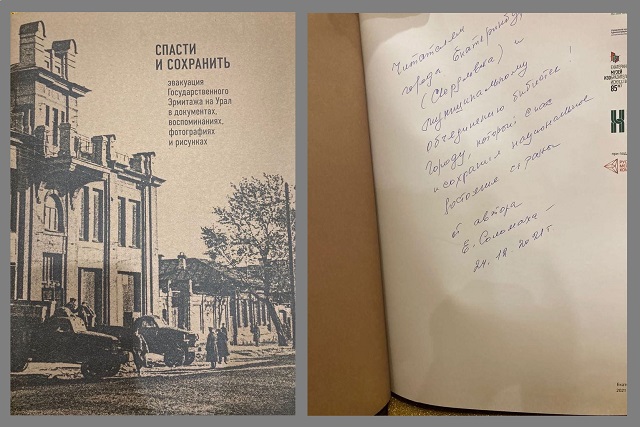 СПАСТИ
И СОХРАНИТЬ
эвакуация
Государственного
Эрмитажа на Урал
в документах,
воспоминаниях,
фотографиях
и рисунках
Читателям
города Екатеринбурга
(Свердловска) и
муниципальному
объединению библиотек
Городу, который спас
и сохранил национальное
достояние страны!
от автора
Е. Соломаха
24.12.2021 г
МУЗЕЙ
85 лет
2021